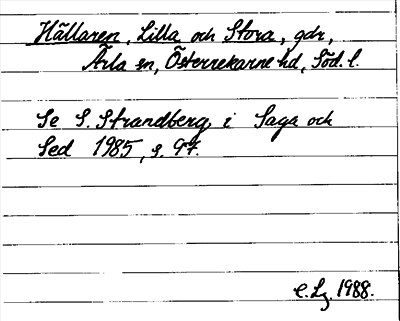 Hällaren, Lilla och Stora, gdr,
Ärla sn, Österrekarne hd, Söd. l.
Se S. Strandberg i Saga och
Sed 1985, s. 97.
E. Lg. 1988.